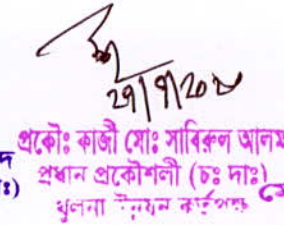 ২৯/৭/২০২৪
প্রকৌঃ কাজী মোঃ সাবিরুল আলম
প্রধান প্রকৌশলী (চঃ দাঃ)
খুলনা উন্নয়ন কর্তৃপক্ষ